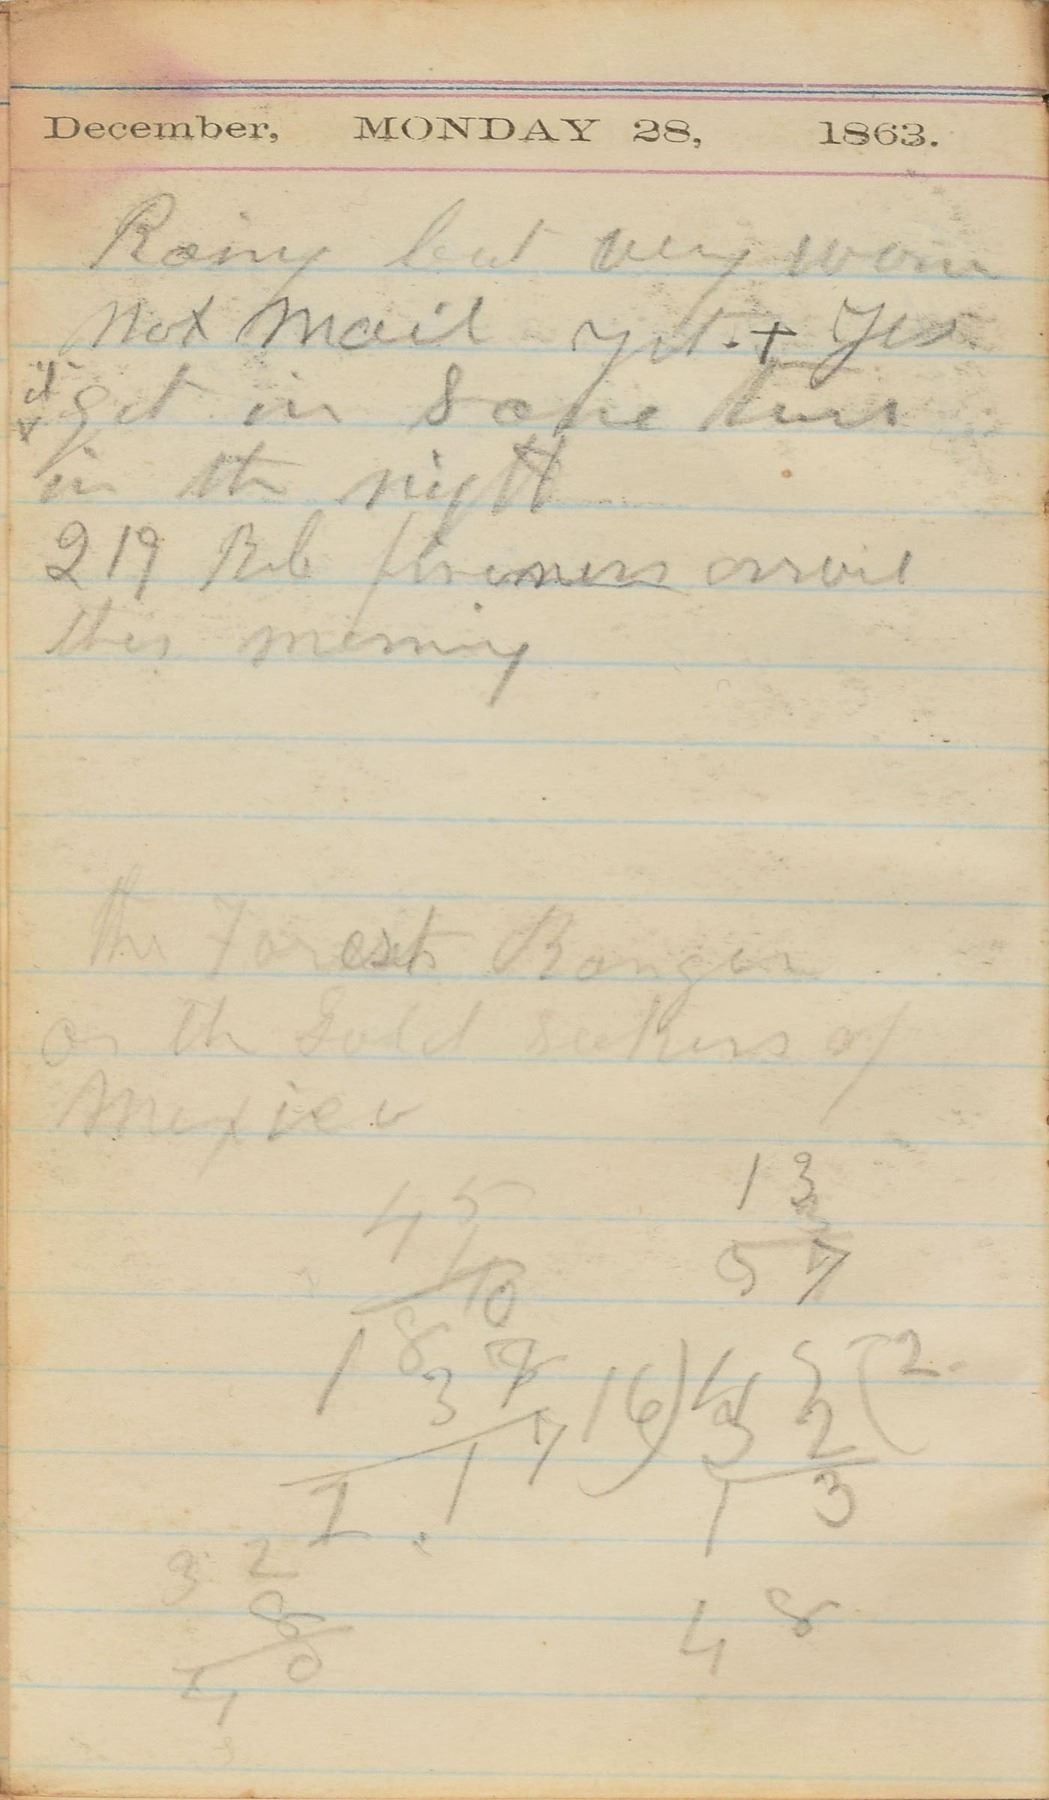 December, MONDAY 28, 1863.
Rainy but very worm
not Mail yet. + Yes
it get in Some time
+
in the night
219 Reb prisiners arrive
this morning
the Forest Ranger
or the Gold seekers of
Mexico
13
3
45
57
10
1 8 8
16) 45 (2
3 7
3 2
1 7
1 3
3 2
8
4 8